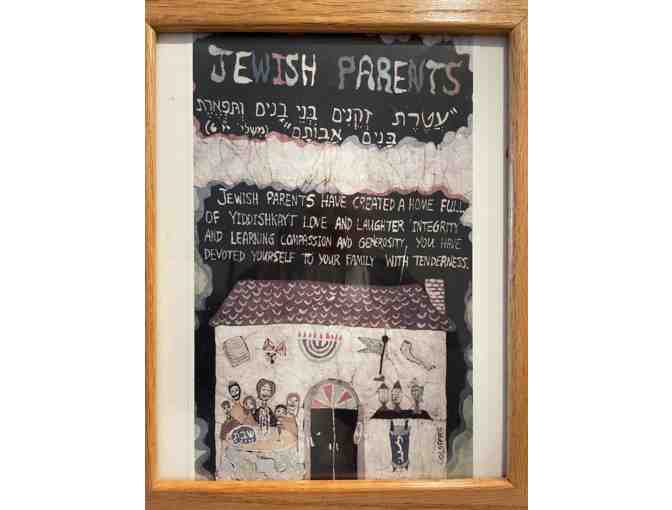 JEWISH PARENTS
"עֲטֶרֶת זְקֵנִים בְּנֵי בָנִים וְתִפְאֶרֶת
בָּנִים אֲבוֹתָם" (משלי י"ז ו)
JEWISH PARENTS HAVE CREATED A HOME FULL
OF YIDDISHKAYT LOVE AND LAUGHTER INTEGRITY
AND LEARNING COMPASSION AND GENEROSITY, YOU HAVE
DEVOTED YOURSELF TO YOUR FAMILY WITH TENDERNESS.
שבת